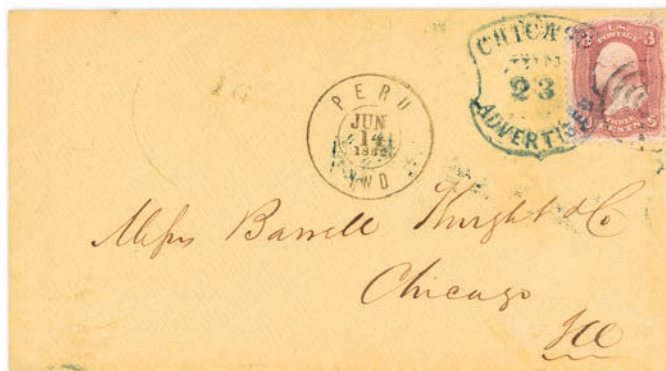 CHICAGO
23
ADVERTISED
U.S.
POSTAGE
3
3
THREE
CENTS
PERU
JUN
14
IND
16
Mess Barrell Knight & Co
Chicago
Ill